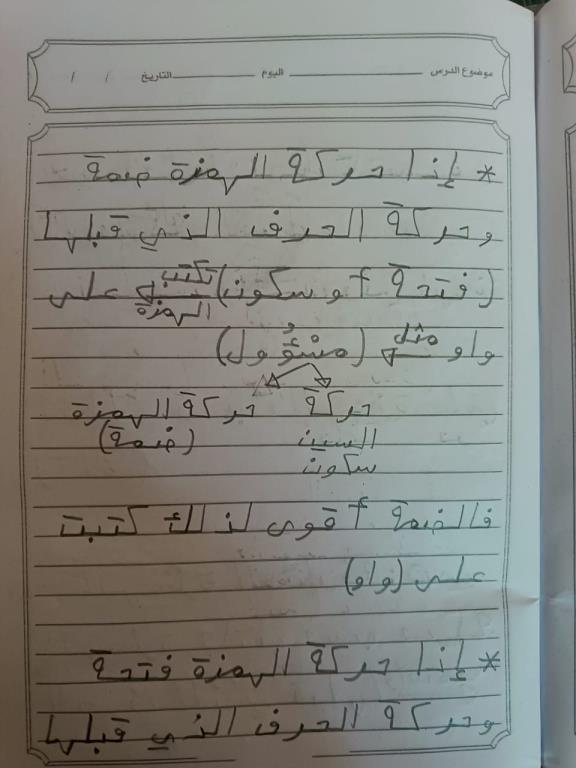 موضوع الدرس اليوم التاريخ / /
* إذا حركة الهمزة ضمة
وحركة الحرف الذي قبلها
(فتحة أو سكون) تكتب الهمزة على
واو مثل (مسْؤُول)
حركة السين سكون
حركة الهمزة (ضمة)
فالضمة أقوى لذالك كتبت
على (واو)
* إذا حركة الهمزة فتحة
وحركة الحرف الذي قبلها